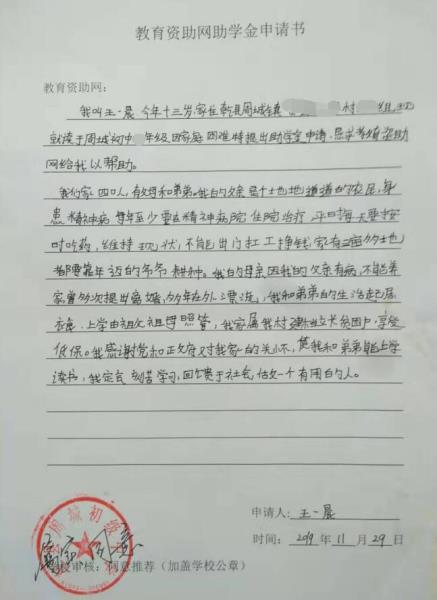 教育资助网助学金申请书
教育资助网：
我叫王一晨 今年十三岁,家住乾县周城镇 村 组,现
就读于周城初中 年级,因家庭困难特提出助学金申请,恳求教育资助
网给我以帮助。
我们家四口人,有父母和弟弟。我的父亲是个土生土地道道的农民,身
患精神病 每年至少要在精神病院住院治疗,平日每天要按
时吃药,维持现状,不能出门打工挣钱,家有 亩多地
都要靠年迈的爷爷耕种。我的母亲因我的父亲有病,不能养
家曾多次提出离婚,多年在外漂流,我和弟弟的生活起居
衣食、上学由祖父祖母照管,我家属我村建档立卡贫困户,享受
低保。我感谢党和正政府对我家的关怀,使我和弟弟能上学
读书,我定会刻苦学习,回馈于社会,估做一个有用的人。
申请人：王一晨
时间：2019年 11月 29日
周城初级
属实 同意
学校审核：同意推荐（加盖学校公章）